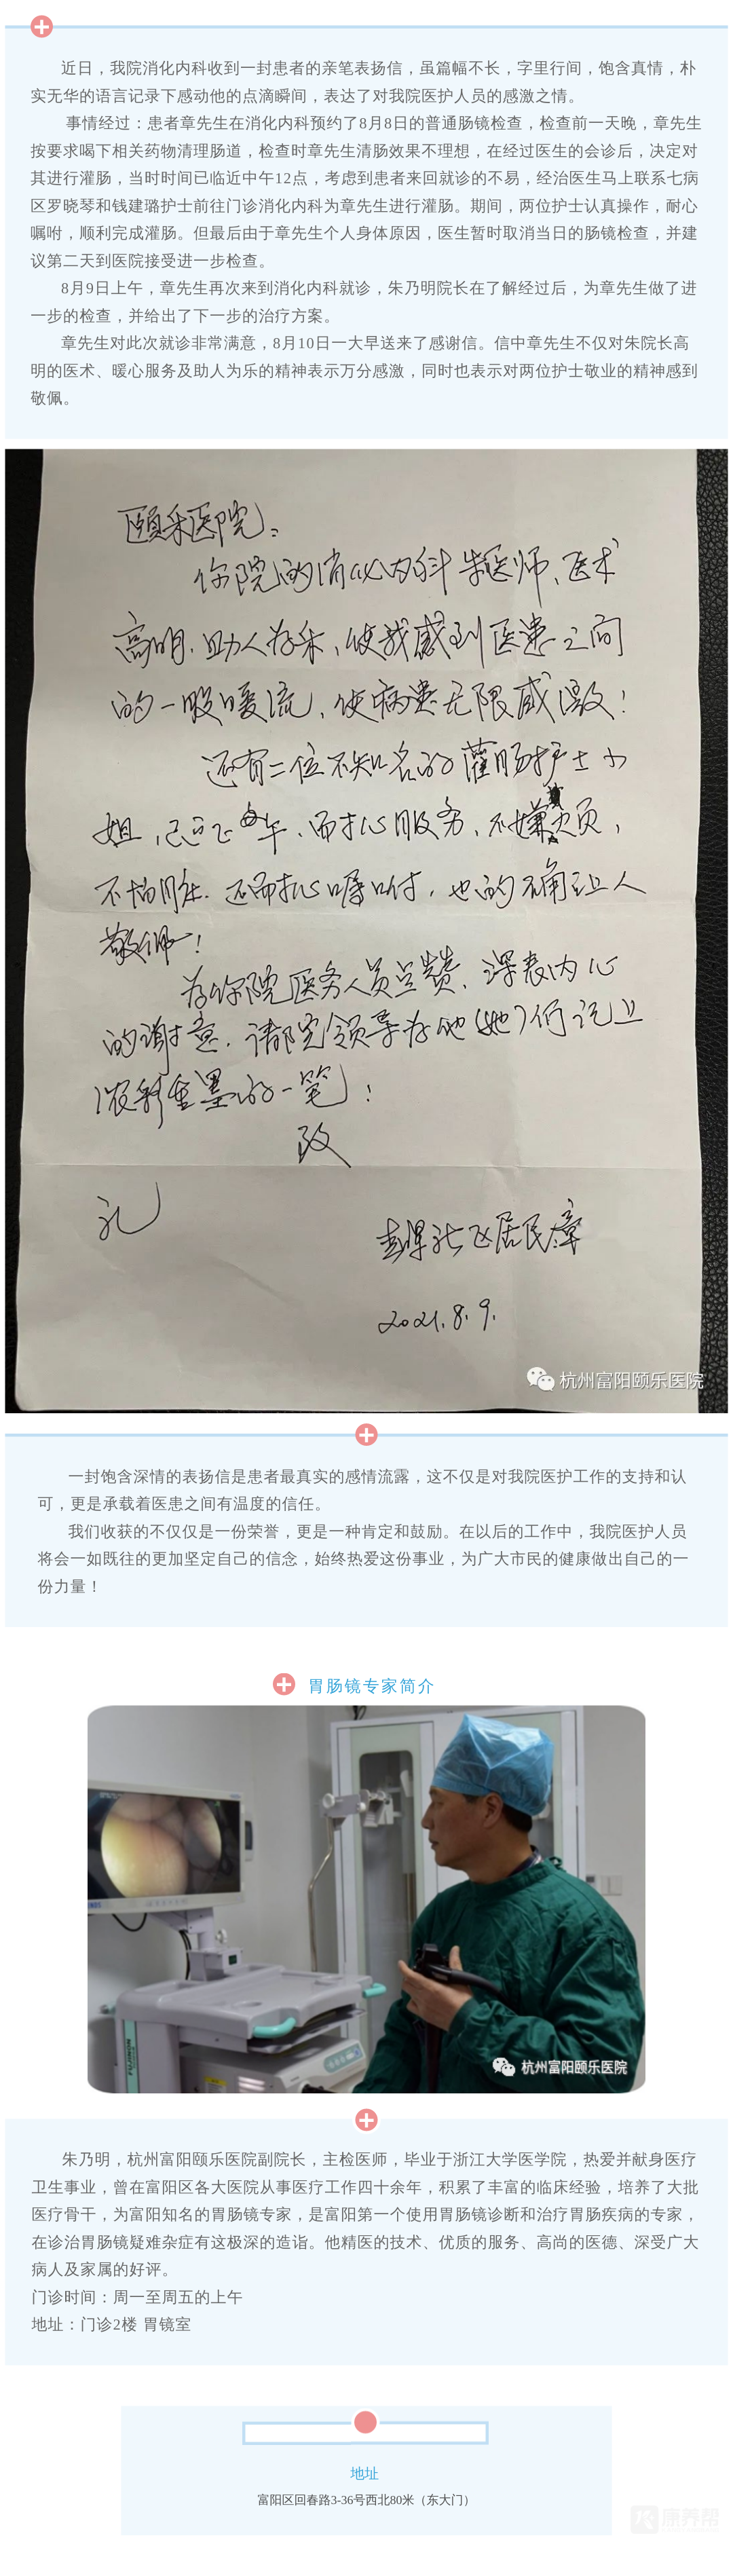 近日，我院消化内科收到一封患者的亲笔表扬信，虽篇幅不长，字里行间，饱含真情，朴
实无华的语言记录下感动他的点滴瞬间，表达了对我院医护人员的感激之情。
事情经过：患者章先生在消化内科预约了8月8日的普通肠镜检查，检查前一天晚，章先生
按要求喝下相关药物清理肠道，检查时章先生清肠效果不理想，在经过医生的会诊后，决定对
其进行灌肠，当时时间已临近中午12点，考虑到患者来回就诊的不易，经治医生马上联系七病
区罗晓琴和钱建璐护士前往门诊消化内科为章先生进行灌肠。期间，两位护士认真操作，耐心
嘱咐，顺利完成灌肠。但最后由于章先生个人身体原因，医生暂时取消当日的肠镜检查，并建
议第二天到医院接受进一步检查。
8月9日上午，章先生再次来到消化内科就诊，朱乃明院长在了解经过后，为章先生做了进
一步的检查，并给出了下一步的治疗方案。
章先生对此次就诊非常满意，8月10日一大早送来了感谢信。信中章先生不仅对朱院长高
明的医术、暖心服务及助人为乐的精神表示万分感激，同时也表示对两位护士敬业的精神感到
敬佩。
颐乐医院：
你院的消化内科朱医师、医术
高明、助人为乐、使我感到医患之间
的一股暖流、使病患无限感激！
还有二位不知名的灌肠护士小
姐，已是正午、而扎心服务，不嫌
不怕脏. 还而扎心嘱咐，也的确让人
敬佩！
为你院医务人员点赞、深表内心
的谢意. 请院领导为他(她)们记上
浓彩重墨的一笔！
致
礼
居民:章
2021.8.9.
杭州富阳颐乐医院
一封饱含深情的表扬信是患者最真实的感情流露，这不仅是对我院医护工作的支持和认
可，更是承载着医患之间有温度的信任。
我们收获的不仅仅是一份荣誉，更是一种肯定和鼓励。在以后的工作中，我院医护人员
将会一如既往的更加坚定自己的信念，始终热爱这份事业，为广大市民的健康做出自己的一
份力量！
胃肠镜专家简介
FUJINON
杭州富阳颐乐医院
朱乃明，杭州富阳颐乐医院副院长，主检医师，毕业于浙江大学医学院，热爱并献身医疗
卫生事业，曾在富阳区各大医院从事医疗工作四十余年，积累了丰富的临床经验，培养了大批
医疗骨干，为富阳知名的胃肠镜专家，是富阳第一个使用胃肠镜诊断和治疗胃肠疾病的专家，
在诊治胃肠镜疑难杂症有这极深的造诣。他精医的技术、优质的服务、高尚的医德、深受广大
病人及家属的好评。
门诊时间：周一至周五的上午
地址：门诊2楼 胃镜室
地址
富阳区回春路3-36号西北80米（东大门）
康养帮